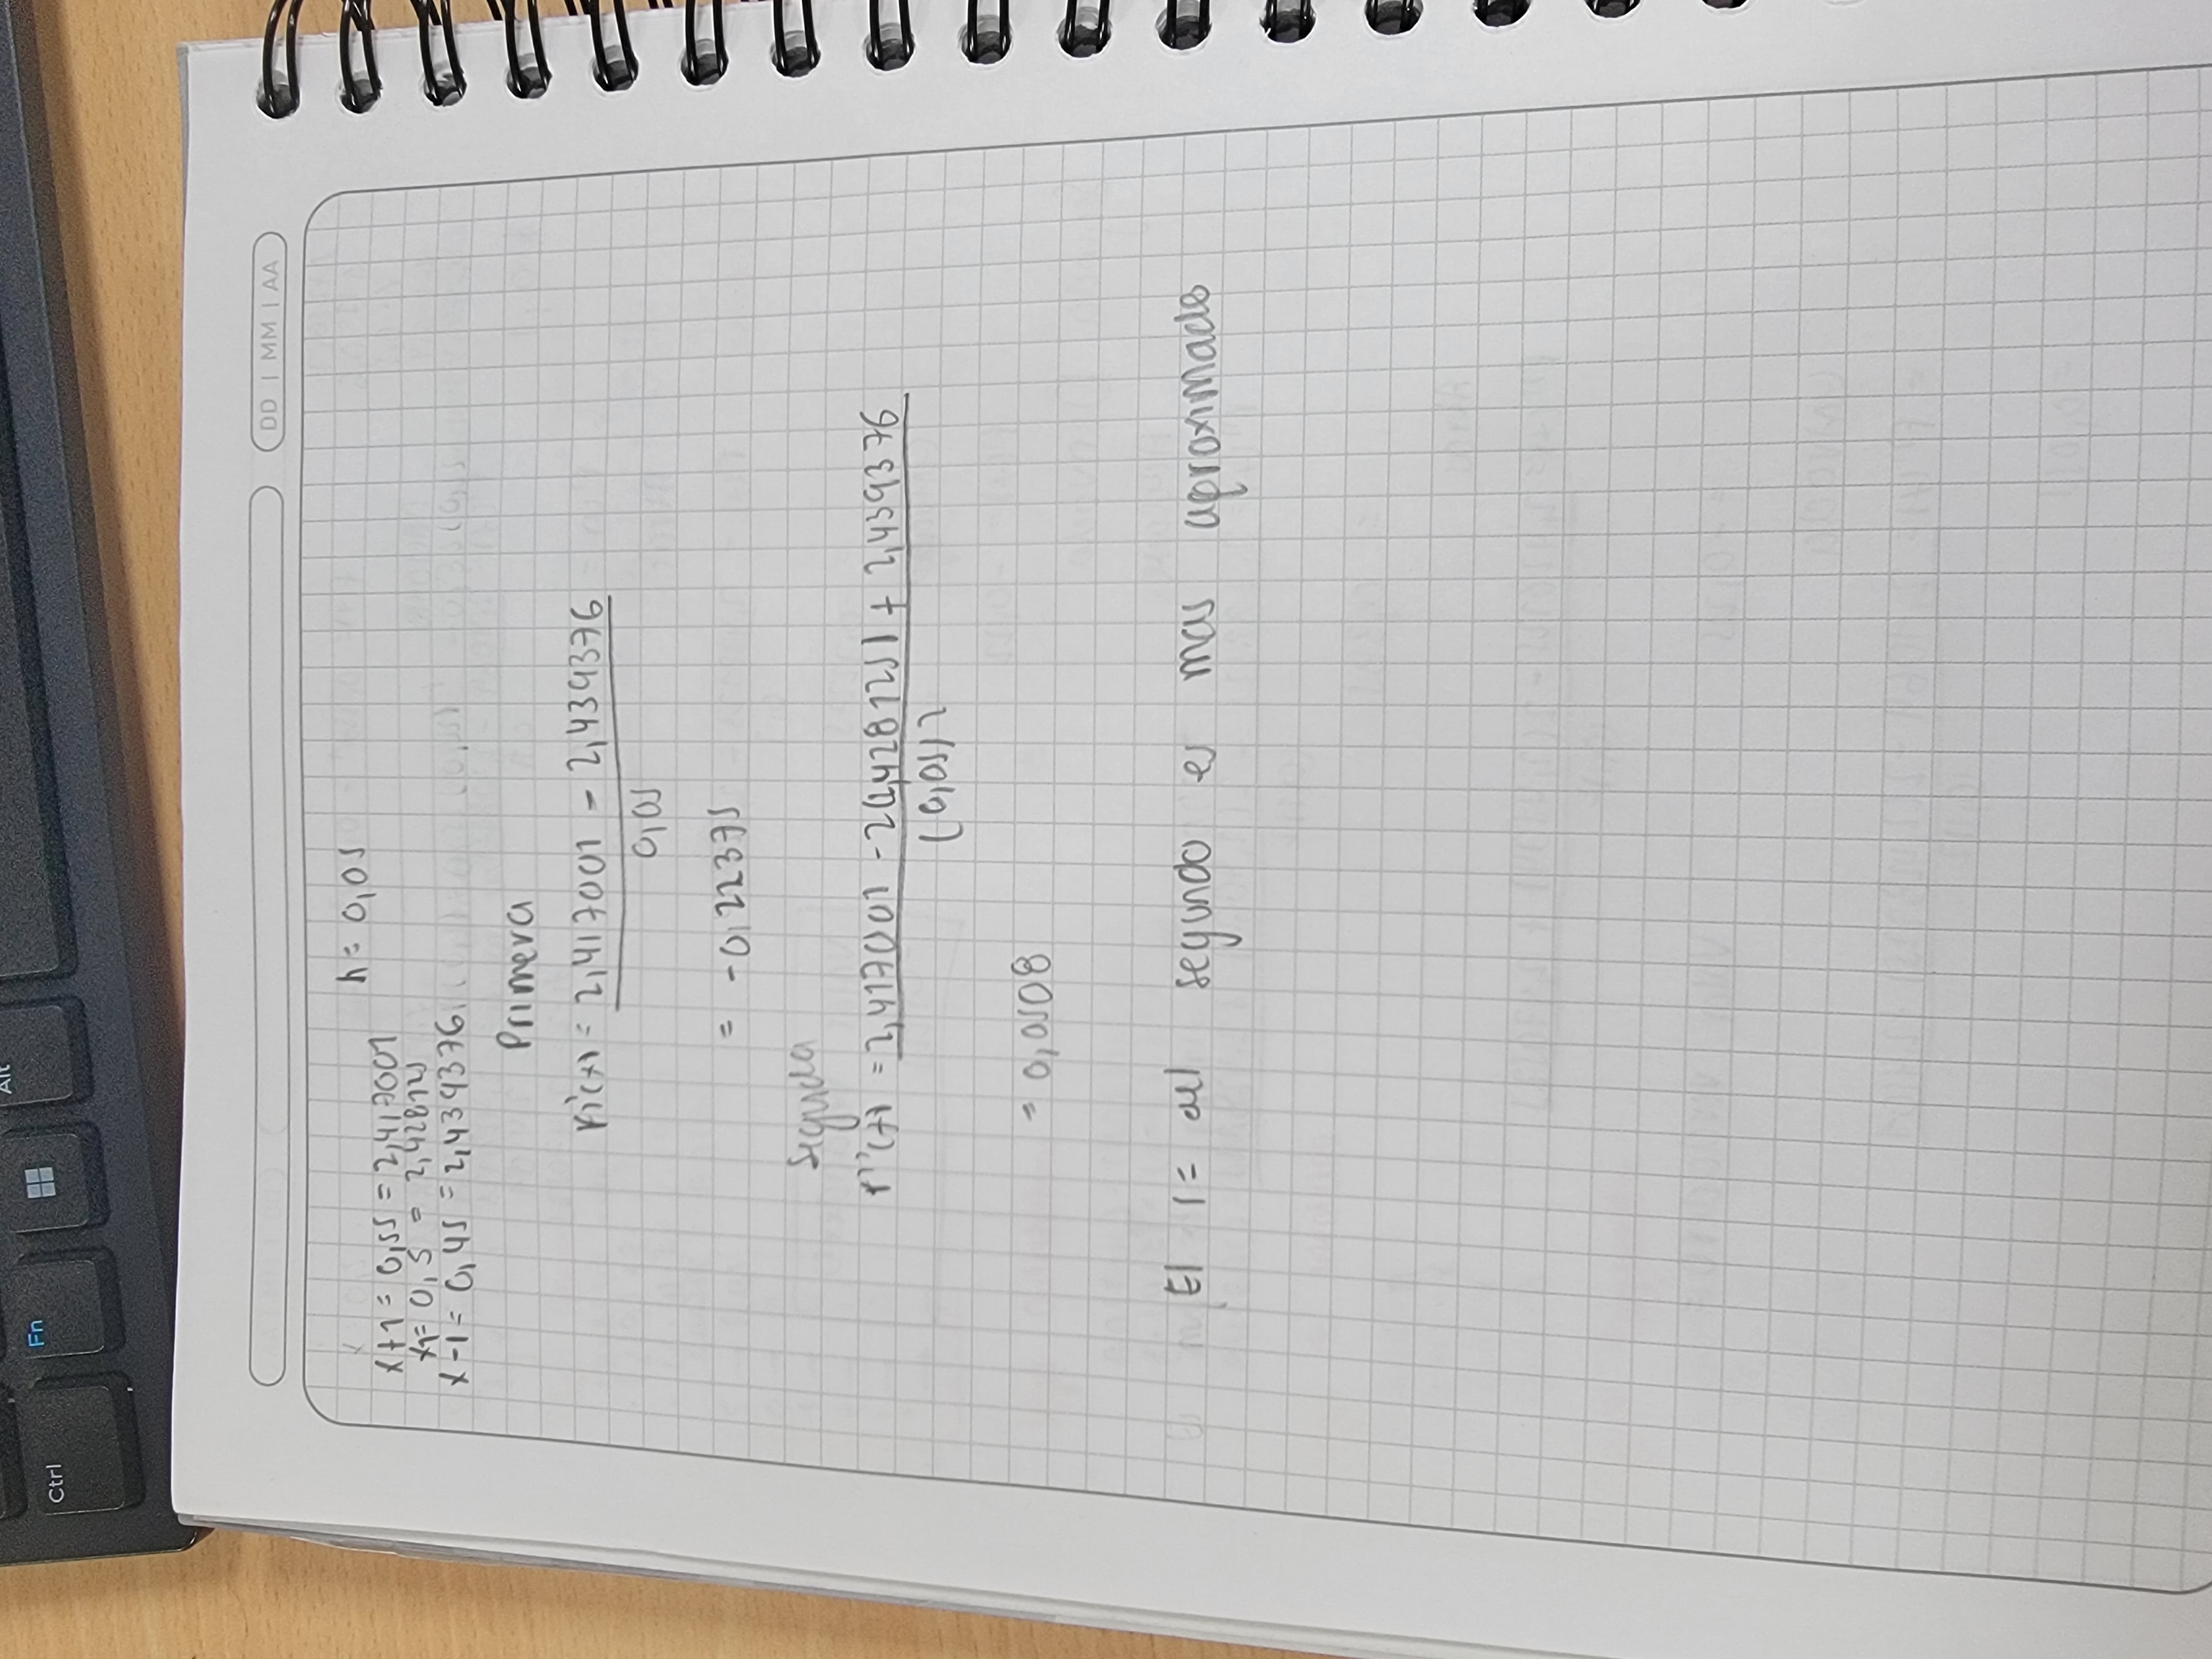 Alt
Ctrl
Fn
DD | MM | AA
h = 0,05
x+1 = 0,55 = 2,417001
x1 = 0,5 = 2,428125
x-1 = 0,45 = 2,439376
Primera
= 2,417001 - 2,439376
0,05
= -0,22375
Seguda
= 2,417001 - 2(2,428125) + 2,439376
(0,05)2
= 0,0508
El 1= del segundo es mas aproximado